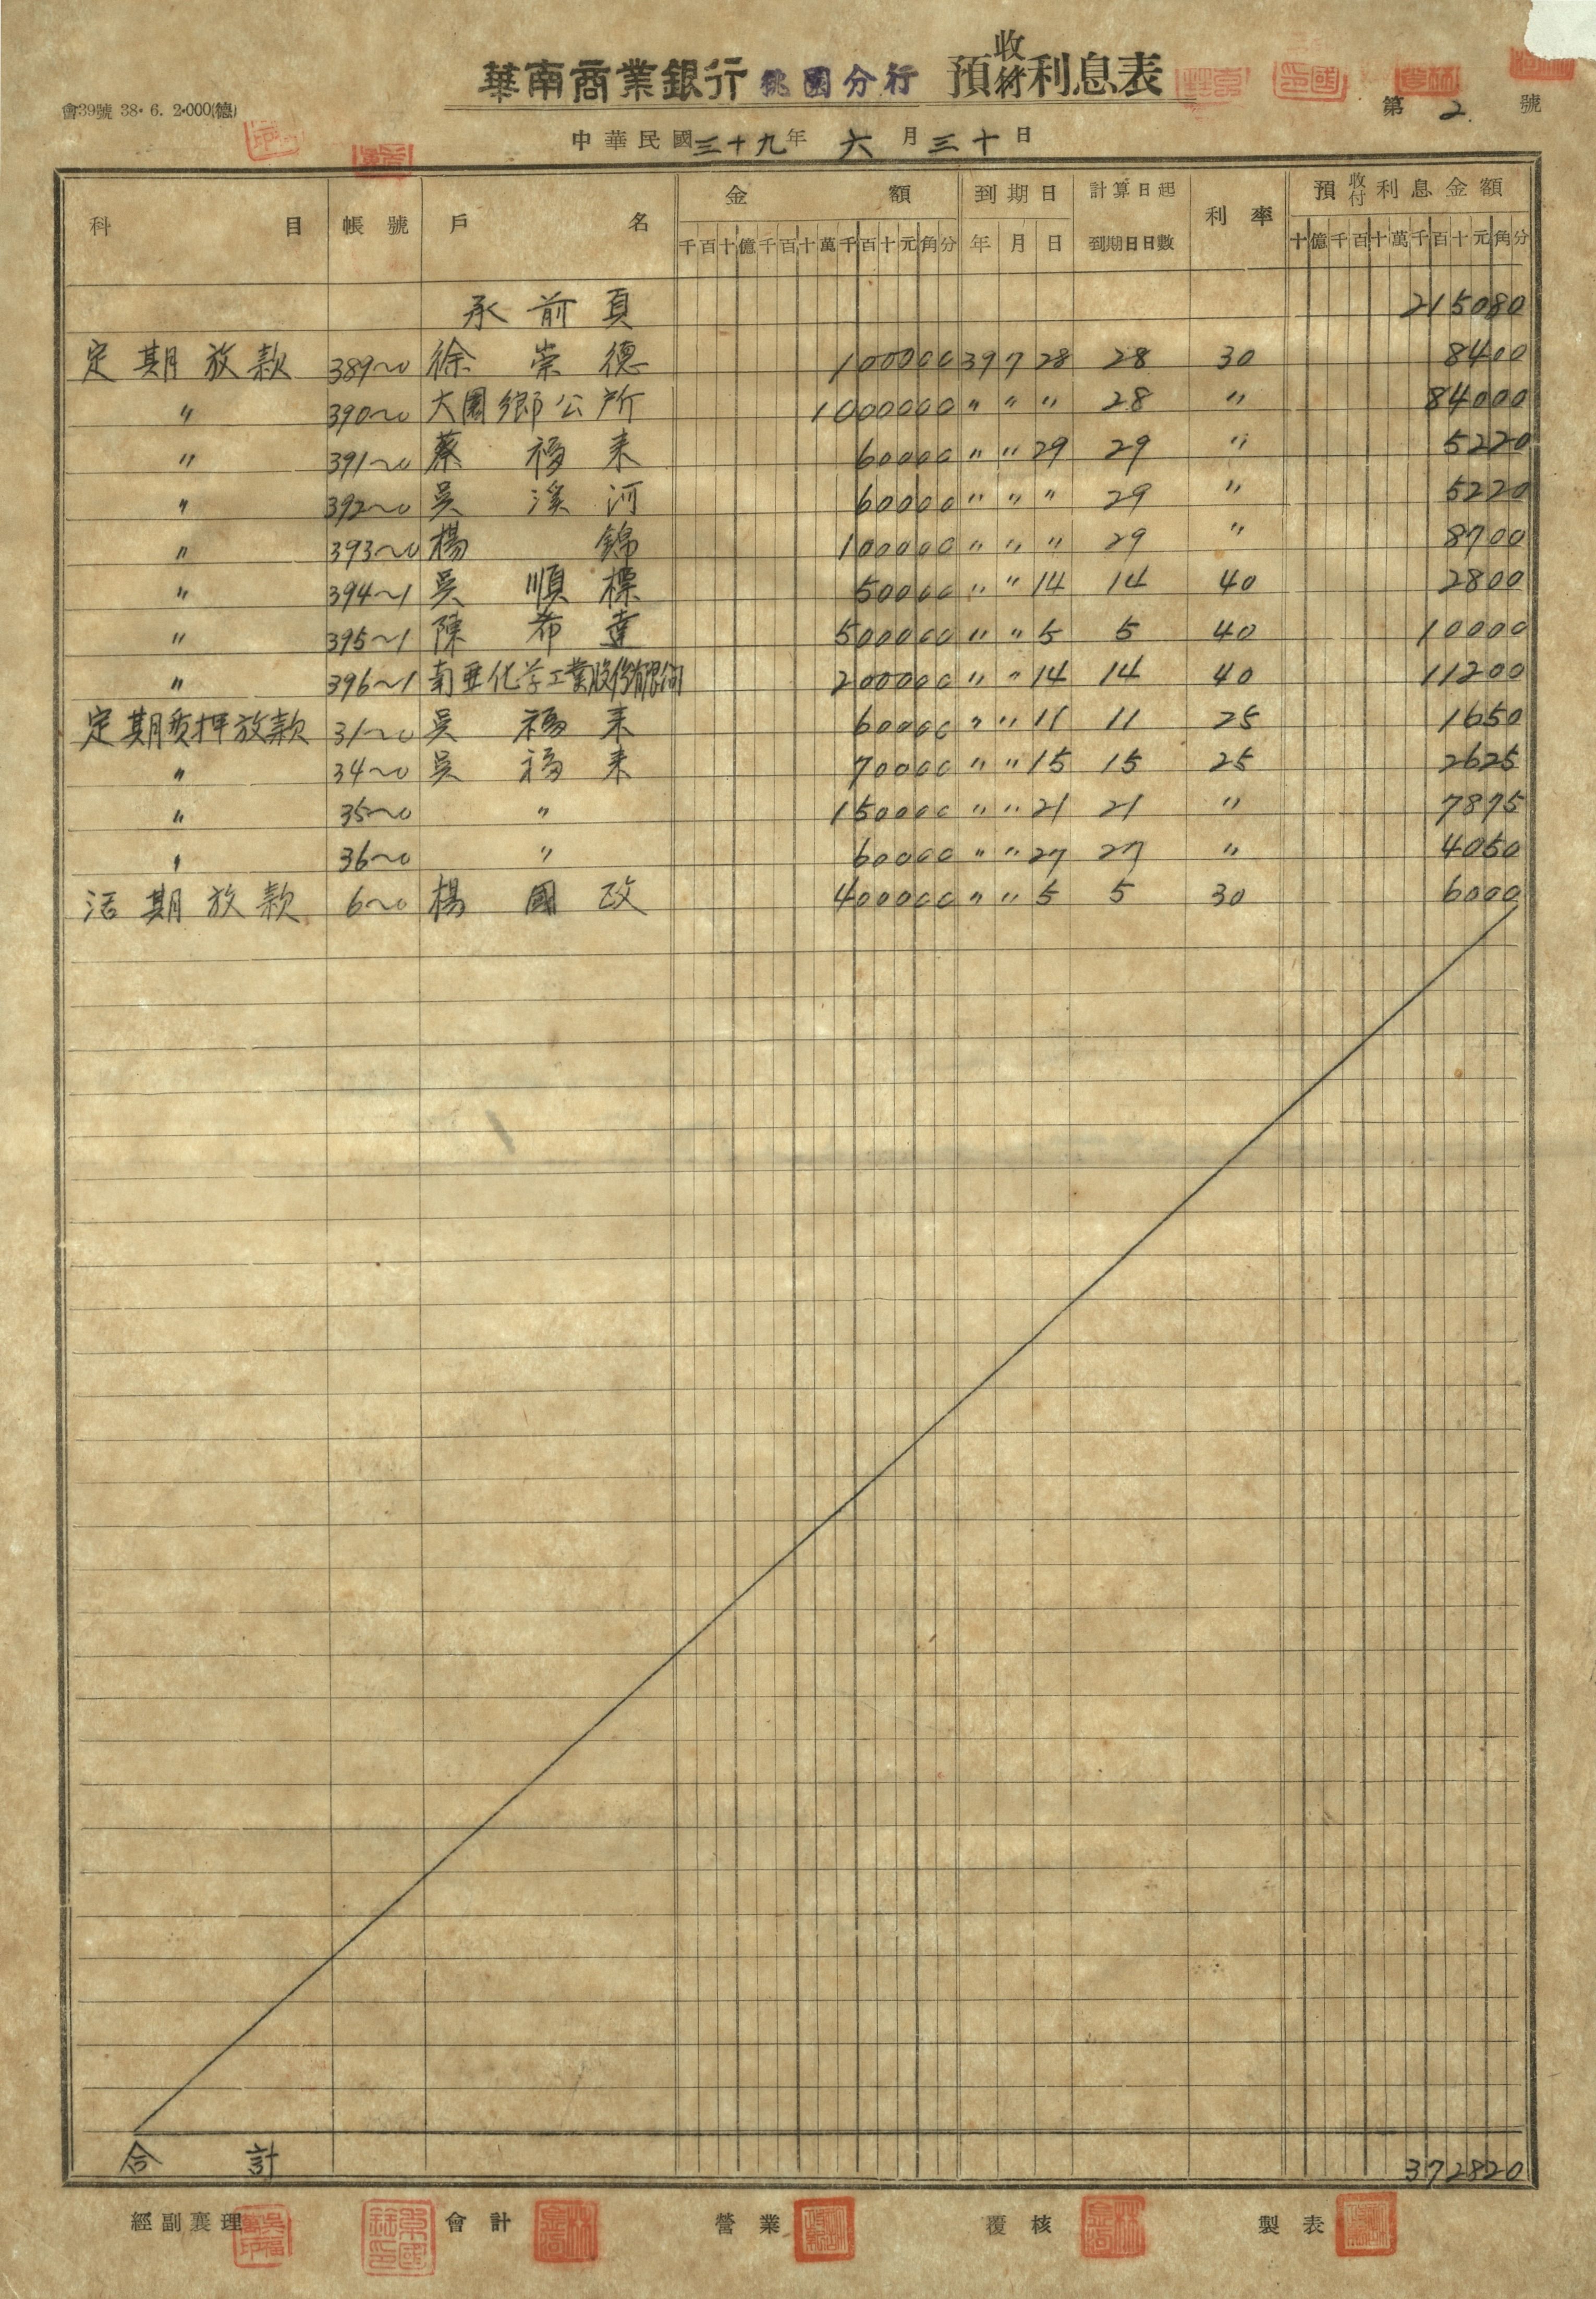 華南商業銀行 桃園分行 預收付利息表
會39號 38·6. 2·000(德)
第 2 號
中華民國三十九年 六 月三十日
科 目 帳號 戶 名 金 額 到期日 計算日起到期日日數 利率 預收付利息金額
千百十億千百十萬千百十元角分 年 月 日 十億千百十萬千百十元角分
承前頁 215080
定期放款 389~0 徐崇德 100000 39 7 28 28 30 8400
〃 390~0 大園鄉公所 1000000 〃 〃 〃 28 〃 84000
〃 391~0 蔡福来 60000 〃 〃 29 29 〃 5220
〃 392~0 吳溪河 60000 〃 〃 〃 29 〃 5220
〃 393~0 楊錦 100000 〃 〃 〃 29 〃 8700
〃 394~1 吳順標 50000 〃 〃 14 14 40 2800
〃 395~1 陳希達 500000 〃 〃 5 5 40 10000
〃 396~1 南亜化学工業股份有限公司 200000 〃 〃 14 14 40 11200
定期質押放款 31~0 吳福来 60000 〃 〃 11 11 25 1650
〃 34~0 吳福来 70000 〃 〃 15 15 25 2625
〃 35~0 〃 150000 〃 〃 21 21 〃 7875
〃 36~0 〃 60000 〃 〃 27 27 〃 4050
活期放款 6~0 楊國政 400000 〃 〃 5 5 30 6000
合計 372820
經副襄理 會計 營業 覆核 製表